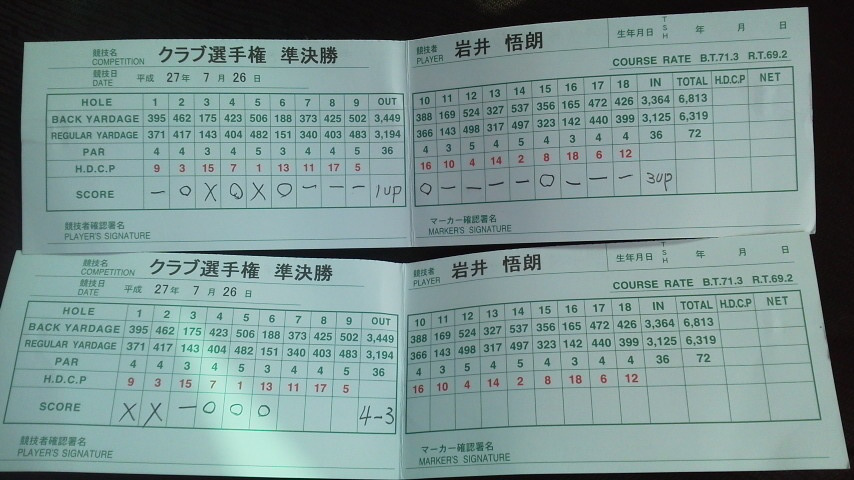 競技名 COMPETITION クラブ選手権 準決勝
競技日 DATE 平成 27年 7月 26日
HOLE 1 2 3 4 5 6 7 8 9 OUT
BACK YARDAGE 395 462 175 423 506 188 373 425 502 3,449
REGULAR YARDAGE 371 417 143 404 482 151 340 403 483 3,194
PAR 4 4 3 4 5 3 4 4 5 36
H.D.C.P 9 3 15 7 1 13 11 17 5
SCORE — O X O X O — — — 1up
競技者確認署名
PLAYER'S SIGNATURE
競技者 PLAYER 岩井 悟朗 生年月日 T S H 年 月 日
COURSE RATE B.T.71.3 R.T.69.2
10 11 12 13 14 15 16 17 18 IN TOTAL H.D.C.P NET
388 169 524 327 537 356 165 472 426 3,364 6,813
366 143 498 317 497 323 142 440 399 3,125 6,319
4 3 5 4 5 4 3 4 4 36 72
16 10 4 14 2 8 18 6 12
O — — — — O — — — 3up
マーカー確認署名
MARKER'S SIGNATURE
競技名 COMPETITION クラブ選手権 準決勝
競技日 DATE 平成 27年 7月 26日
HOLE 1 2 3 4 5 6 7 8 9 OUT
BACK YARDAGE 395 462 175 423 506 188 373 425 502 3,449
REGULAR YARDAGE 371 417 143 404 482 151 340 403 483 3,194
PAR 4 4 3 4 5 3 4 4 5 36
H.D.C.P 9 3 15 7 1 13 11 17 5
SCORE X X — O O O 4-3
競技者確認署名
PLAYER'S SIGNATURE
競技者 PLAYER 岩井 悟朗 生年月日 T S H 年 月 日
COURSE RATE B.T.71.3 R.T.69.2
10 11 12 13 14 15 16 17 18 IN TOTAL H.D.C.P NET
388 169 524 327 537 356 165 472 426 3,364 6,813
366 143 498 317 497 323 142 440 399 3,125 6,319
4 3 5 4 5 4 3 4 4 36 72
16 10 4 14 2 8 18 6 12
マーカー確認署名
MARKER'S SIGNATURE